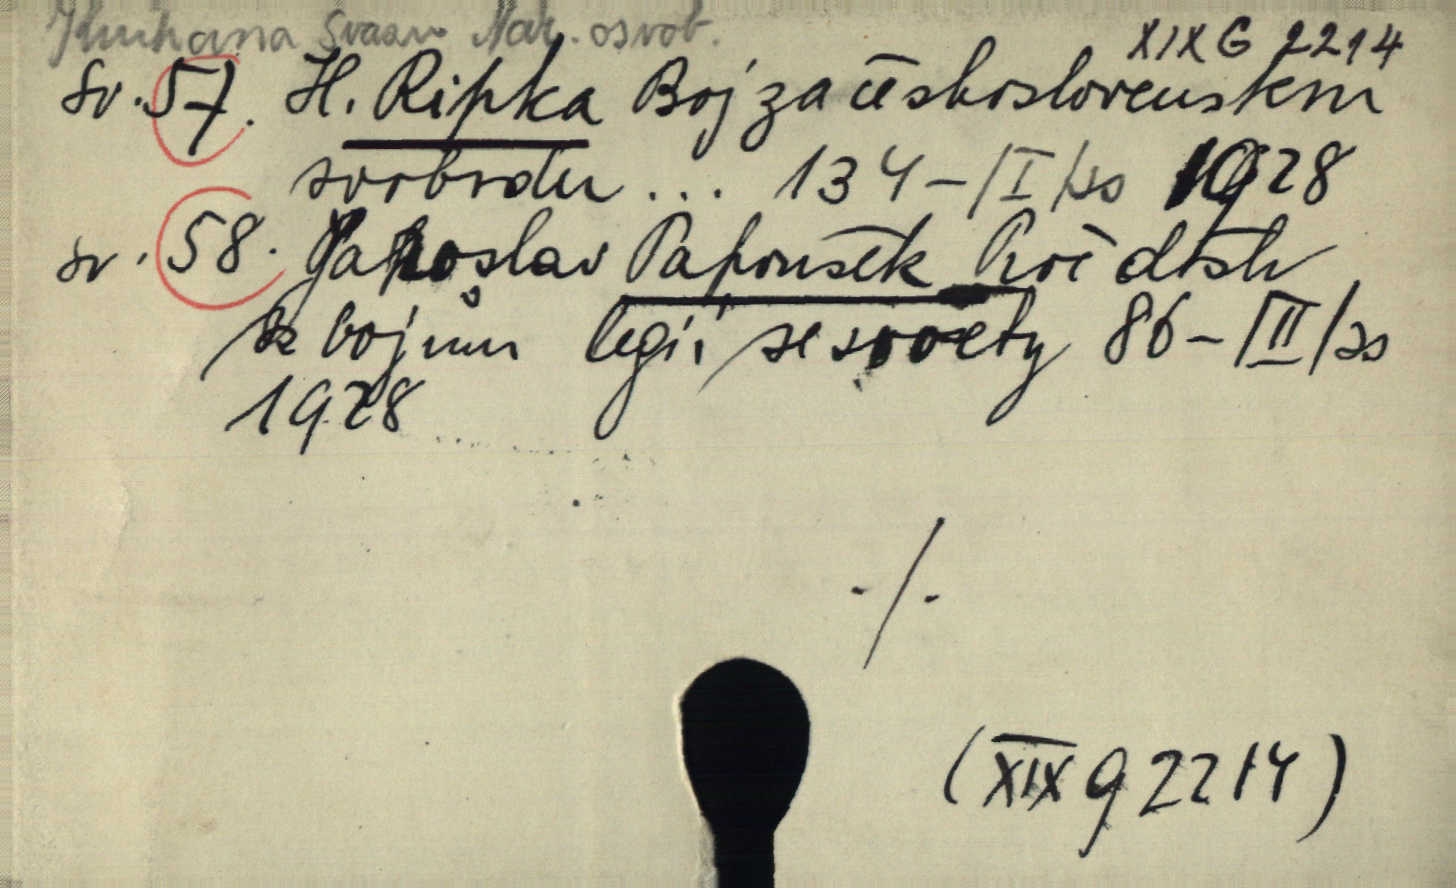 Knihovna Svazu Nár. osvob.
XIX G 2214
Sv. 57. H. Ripka Boj za československou
svobodu ... 134 - /I/ss 1928
sv. 58. Jaroslav Papoušek Proč došlo
k bojům legií se sověty 86 - /II/ss
1928
-/-
(XIX G 2214)